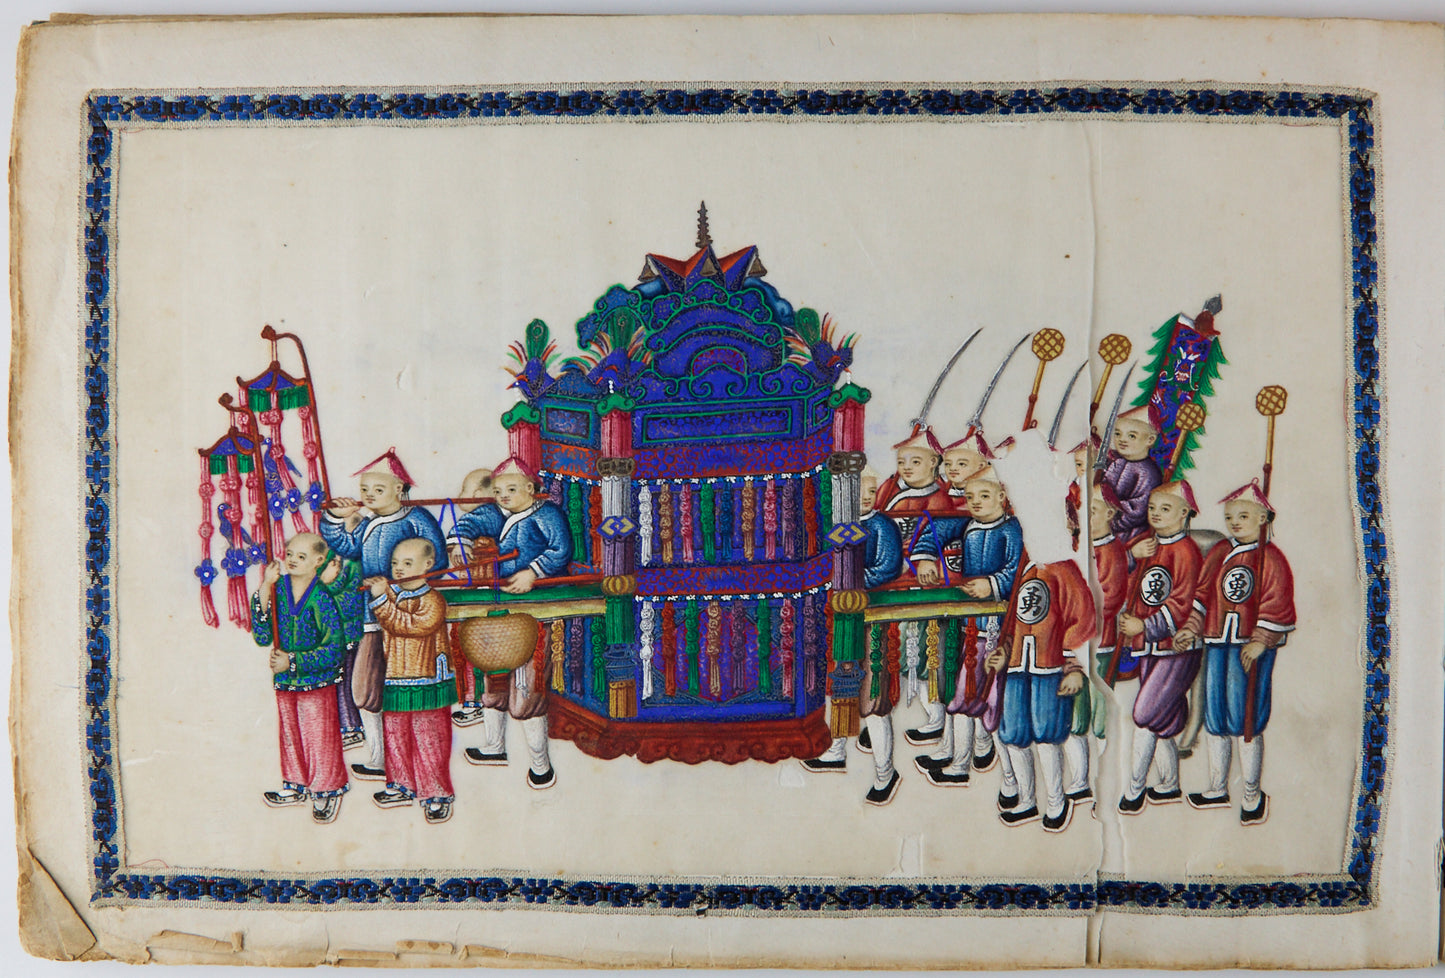 勇
勇
勇